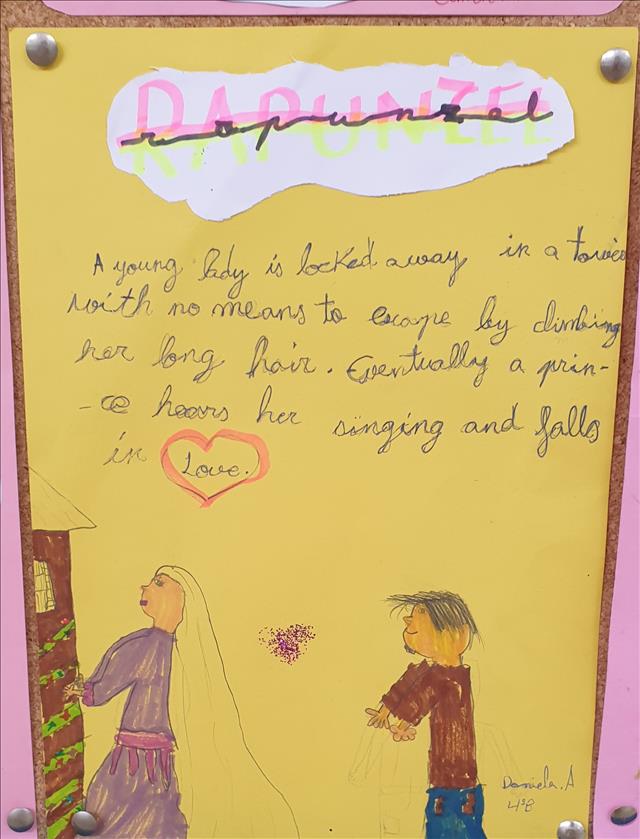 RAPUNZEL
rapunzel
A young lady is locked away in a tower
with no means to escape by climbing
her long hair. Eventually a prin-
-ce hears her singing and falls
in Love.
Daniela. A